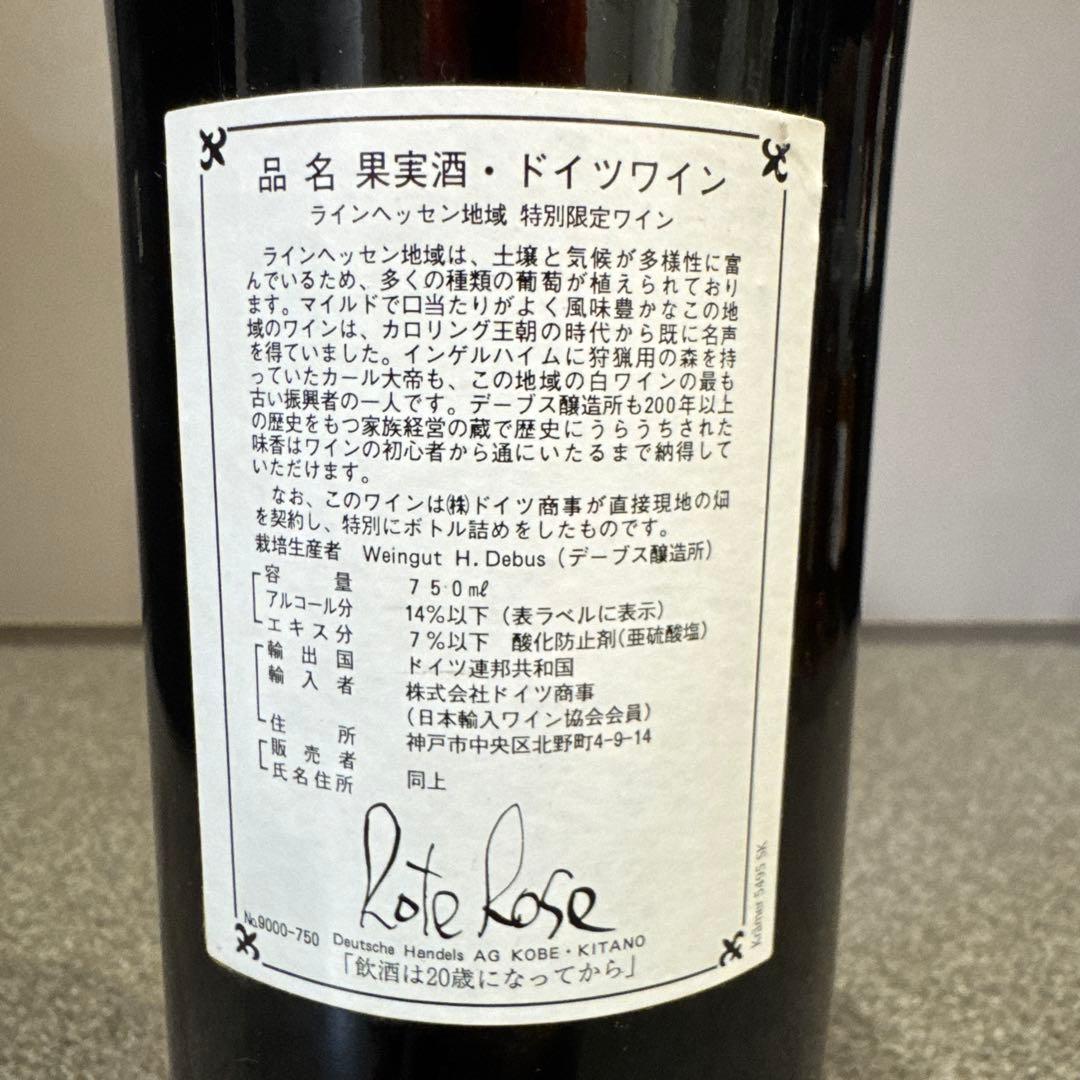 品名 果実酒・ドイツワイン
ラインヘッセン地域 特別限定ワイン
ラインヘッセン地域は、土壌と気候が多様性に富
んでいるため、多くの種類の葡萄が植えられており
ます。マイルドで口当たりがよく風味豊かなこの地
域のワインは、カロリング王朝の時代から既に名声
を得ていました。インゲルハイムに狩猟用の森を持
っていたカール大帝も、この地域の白ワインの最も
古い振興者の一人です。デーブス醸造所も200年以上
の歴史をもつ家族経営の蔵で歴史にうらうちされた
味香はワインの初心者から通にいたるまで納得して
いただけます。
なお、このワインは㈱ドイツ商事が直接現地の畑
を契約し、特別にボトル詰めをしたものです。
栽培生産者 Weingut H. Debus (デーブス醸造所)
容量 750㎖
アルコール分 14%以下 (表ラベルに表示)
エキス分 7%以下 酸化防止剤(亜硫酸塩)
輸出国 ドイツ連邦共和国
輸入者 株式会社ドイツ商事
(日本輸入ワイン協会会員)
住所 神戸市中央区北野町4-9-14
販売者
氏名住所 同上
Rote Rose
№9000-750 Deutsche Handels AG KOBE・KITANO
「飲酒は20歳になってから」
Krämer 5495 SK